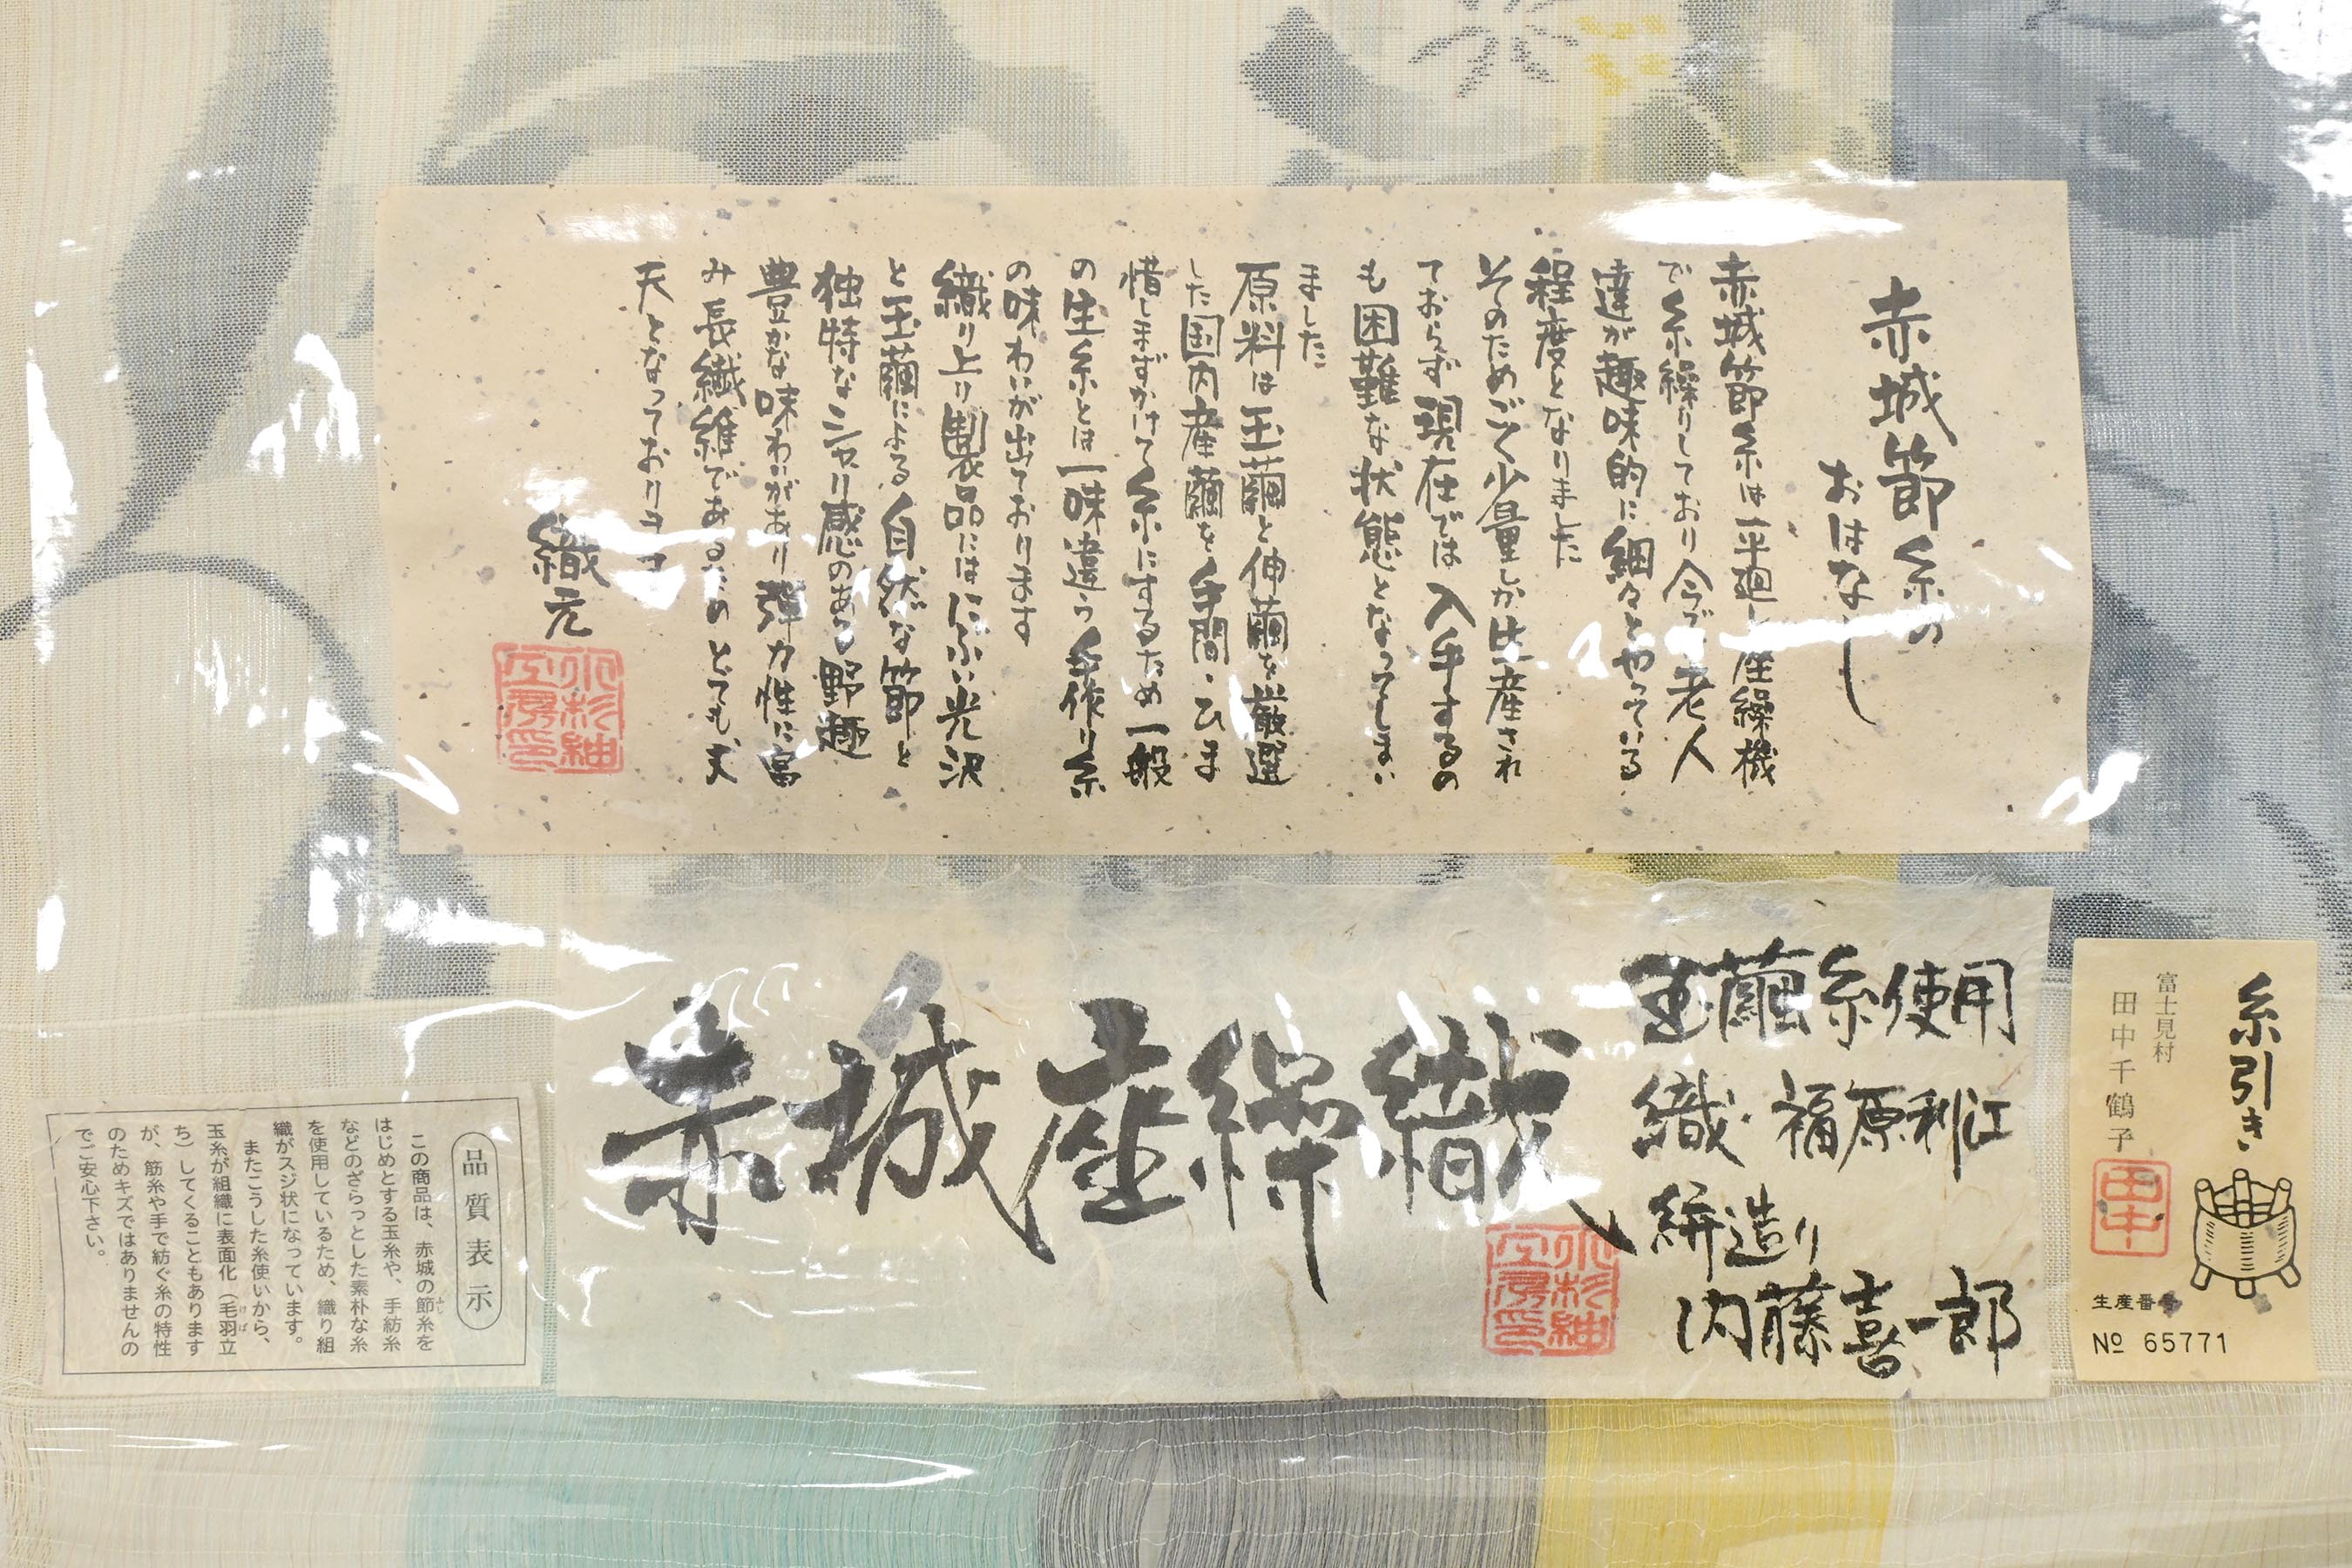 赤城節糸の
おはなし
赤城節糸は平廻し座繰機
で糸繰りしており今で 老人
達が趣味的に細々とやっている
程度となりました
そのためごく少量しか生産され
ておらず現在では入手するの
も困難な状態となってしまい
ました
原料は玉繭と伸繭を厳選
した国内産繭を手間・ひま
惜しまずかけて糸にするため一般
の生糸とは一味違う糸作り糸
の味わいが出ております
織り上り製品にはにぶい光沢
と玉繭による自然な節と
独特なシャリ感のある野趣
豊かな味わいがあり弾力性に富
み長繊維であるためとても丈
夫となっております
織元
小杉紬
工房印
玉繭糸使用
織 福原利江
絣造り
内藤喜一郎
赤城座繰織
小杉紬
工房印
糸引き
富士見村
田中千鶴子
田中
生産番号
№ 65771
品質表示
この商品は、赤城の節糸を
はじめとする玉糸や、手紡糸
などのざらっとした素朴な糸
を使用しているため、織り組
織がスジ状になっています。
またこうした糸使いから、
玉糸が組織に表面化（毛羽立
ち）してくることもあります
が、節糸や手で紡ぐ糸の特性
のためキズではありませんの
でご安心下さい。